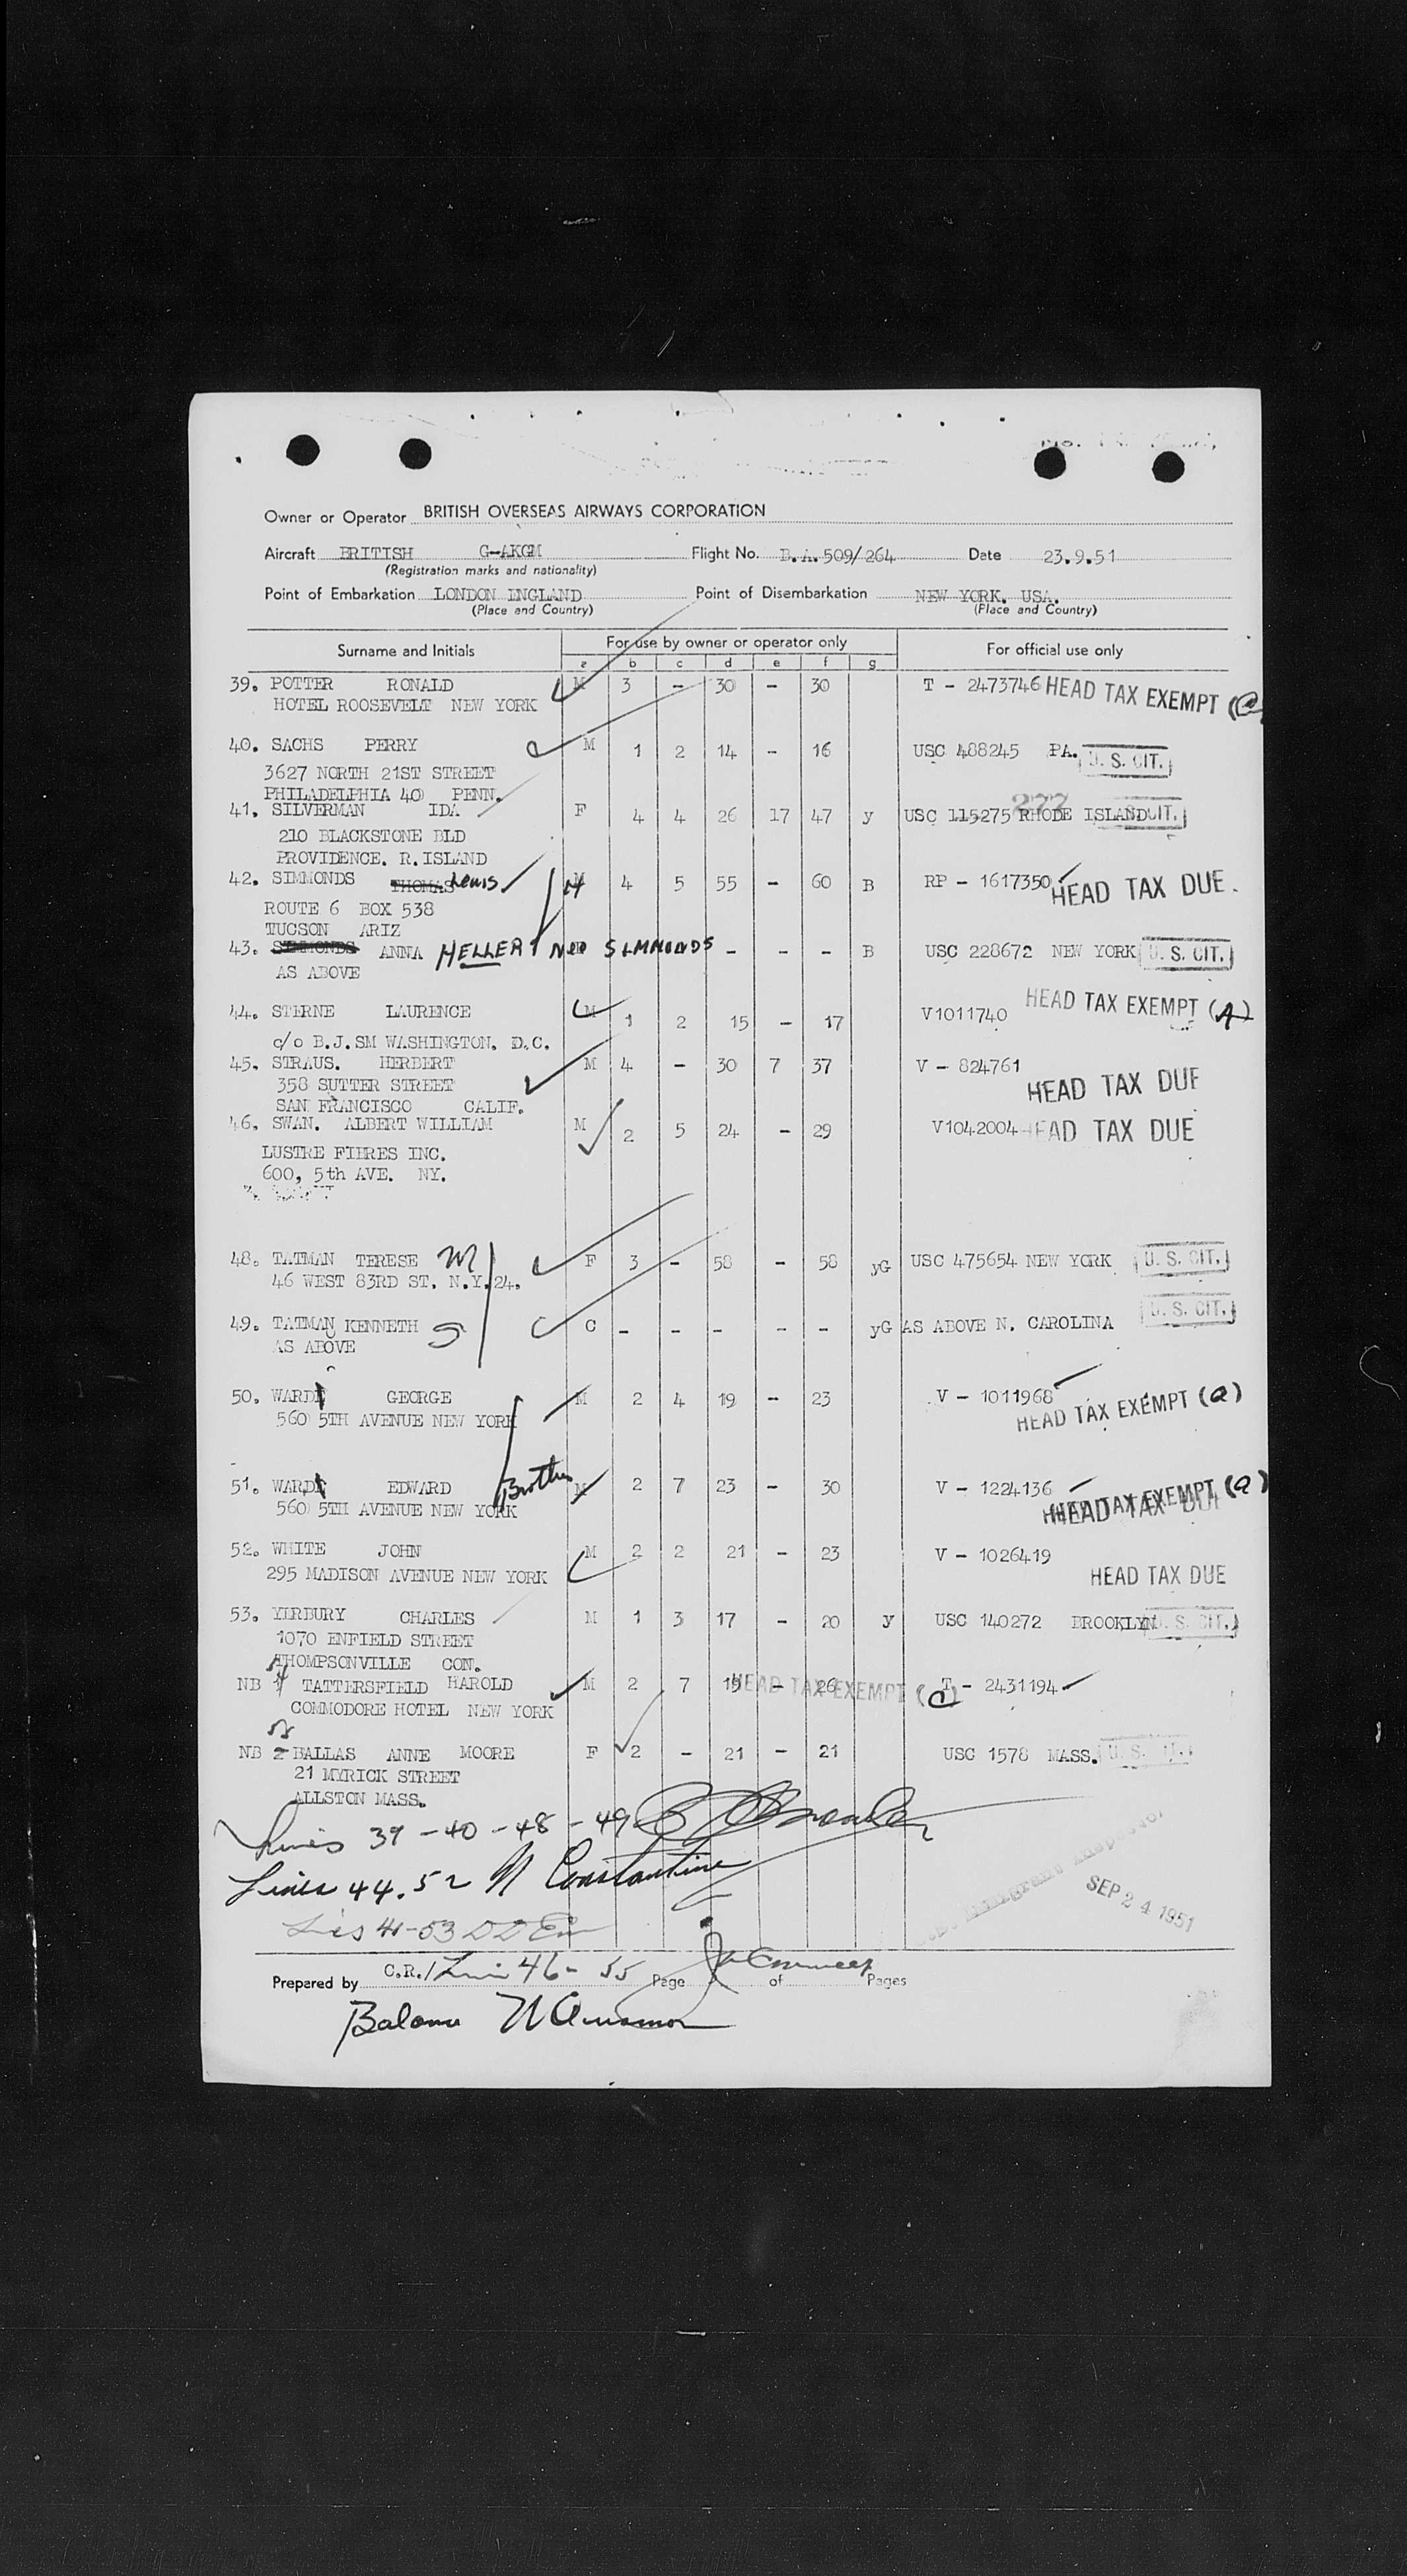 Owner or Operator BRITISH OVERSEAS AIRWAYS CORPORATION
Aircraft BRITISH G-AKGM Flight No. B.A. 509/264 Date 23.9.51
(Registration marks and nationality)
Point of Embarkation LONDON ENGLAND Point of Disembarkation NEW YORK. USA.
(Place and Country) (Place and Country)
Surname and Initials For use by owner or operator only For official use only
a b c d e f g
39. POTTER RONALD M 3 - 30 - 30 T - 2473746 HEAD TAX EXEMPT (C)
HOTEL ROOSEVELT NEW YORK
40. SACHS PERRY M 1 2 14 - 16 USC 488245 PA. U. S. CIT.
3627 NORTH 21ST STREET
PHILADELPHIA 40 PENN.
277
41. SILVERMAN IDA F 4 4 26 17 47 y USC 115275 RHODE ISLAND U. S. CIT.
210 BLACKSTONE BLD
PROVIDENCE. R.ISLAND
42. SIMMONDS THOMAS Lewis M 4 5 55 - 60 B RP - 1617350 HEAD TAX DUE.
ROUTE 6 BOX 538
TUCSON ARIZ
43. SIMMONDS ANNA HELLER NEE SIMMONDS - - - B USC 228672 NEW YORK U. S. CIT.
AS ABOVE
44. STERNE LAURENCE M 1 2 15 - 17 V1011740 HEAD TAX EXEMPT (A)
c/o B.J.SM WASHINGTON. D.C.
45. STRAUS. HERBERT M 4 - 30 7 37 V - 824761
358 SUTTER STREET HEAD TAX DUE
SAN FRANCISCO CALIF.
46. SWAN. ALBERT WILLIAM M 2 5 24 - 29 V1042004 HEAD TAX DUE
LUSTRE FIBRES INC.
600, 5th AVE. NY.
48. TATMAN TERESE M F 3 - 58 - 58 yG USC 475654 NEW YORK U. S. CIT.
46 WEST 83RD ST. N.Y.24.
49. TATMAN KENNETH S C - - - - - yG AS ABOVE N. CAROLINA U. S. CIT.
AS ABOVE
50. WARDE GEORGE M 2 4 19 - 23 V - 1011968
560 5TH AVENUE NEW YORK HEAD TAX EXEMPT (a)
51. WARDE EDWARD Brother M 2 7 23 - 30 V - 1224136
560 5TH AVENUE NEW YORK HEAD TAX EXEMPT (a) HEAD TAX DUE
52. WHITE JOHN M 2 2 21 - 23 V - 1026419
295 MADISON AVENUE NEW YORK HEAD TAX DUE
53. YERBURY CHARLES M 1 3 17 - 20 y USC 140272 BROOKLYN U. S. CIT.
1070 ENFIELD STREET
THOMPSONVILLE CON.
NB 1 TATTERSFIELD HAROLD M 2 7 19 - 26 HEAD TAX EXEMPT (C) T - 2431194
COMMODORE HOTEL NEW YORK
NB 2 BALLAS ANNE MOORE F 2 - 21 - 21 USC 1578 MASS. U. S. CIT.
21 MYRICK STREET
ALLSTON MASS.
Lines 39 - 40 - 48 - 49
Lines 44. 52 N Constantine
SEP 24 1951
41-53
Prepared by C.R./ 46 - 55 Page of Pages
Balance